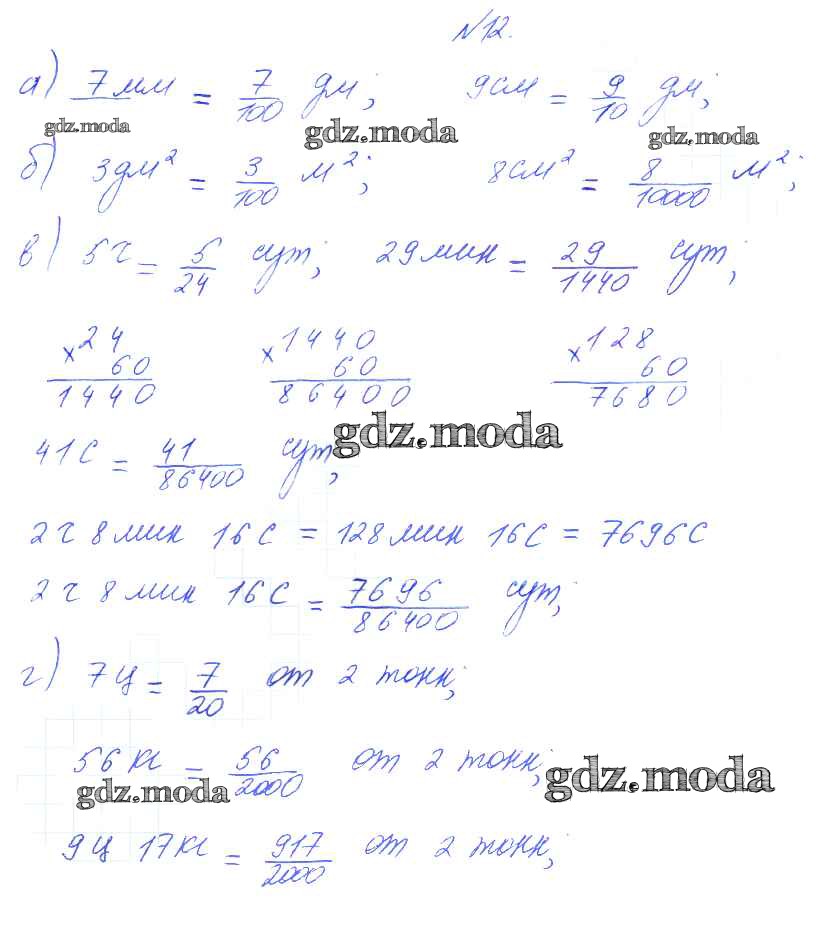 №12.
а) 7мм = 7/100 дм; 9см = 9/10 дм;
gdz.moda gdz.moda gdz.moda
б) 3дм² = 3/100 м²; 8см² = 8/10000 м²;
в) 5ч = 5/24 сут; 29мин = 29/1440 сут;
×24 ×1440 ×128
60 60 60
1440 86400 7680
gdz.moda
41с = 41/86400 сут;
2ч 8мин 16с = 128мин 16с = 7696с
2ч 8мин 16с = 7696/86400 сут;
г) 7ц = 7/20 от 2 тонн;
56кг = 56/2000 от 2 тонн;
gdz.moda gdz.moda
9ц 17кг = 917/2000 от 2 тонн;